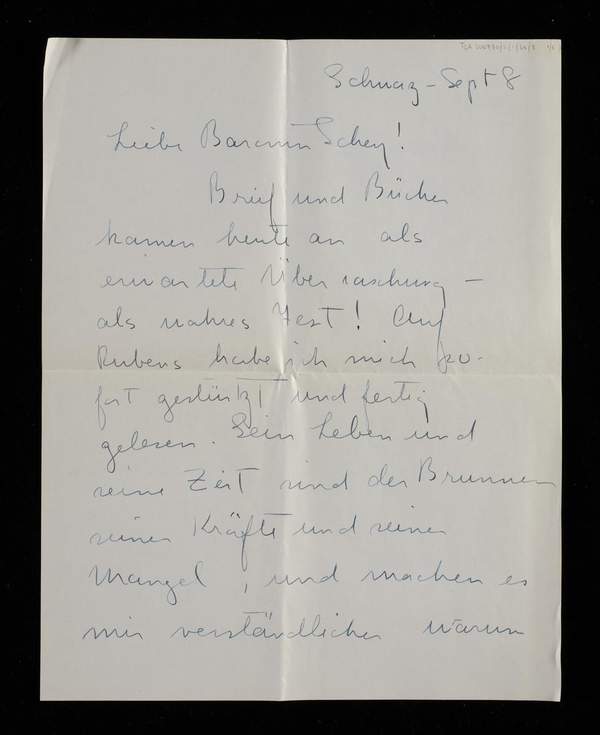 Schwaz - Sept 8
Liebe Baronin Schey!
Brief und Bücher
kamen heute an als
erwartete Überraschung -
als wahres Fest! Auf
Rubens habe ich mich so-
fort gestürzt und fertig
gelesen. Sein Leben und
seine Zeit sind der Brunnen
seiner Kräfte und seiner
Mängel, und machen es
mir verständlicher warum